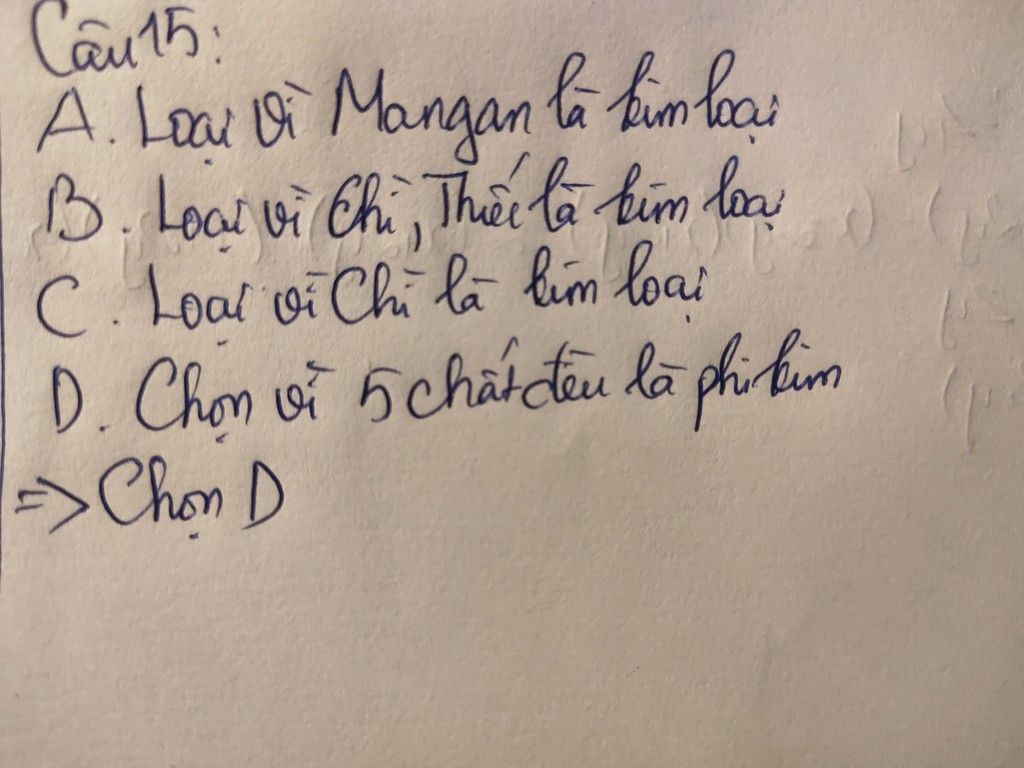 Câu 15:
A. Loại vì Mangan là kim loại
B. Loại vì Chì, Thiếc là kim loại
C. Loại vì Chì là kim loại
D. Chọn vì 5 chất đều là phi kim
=> Chọn D